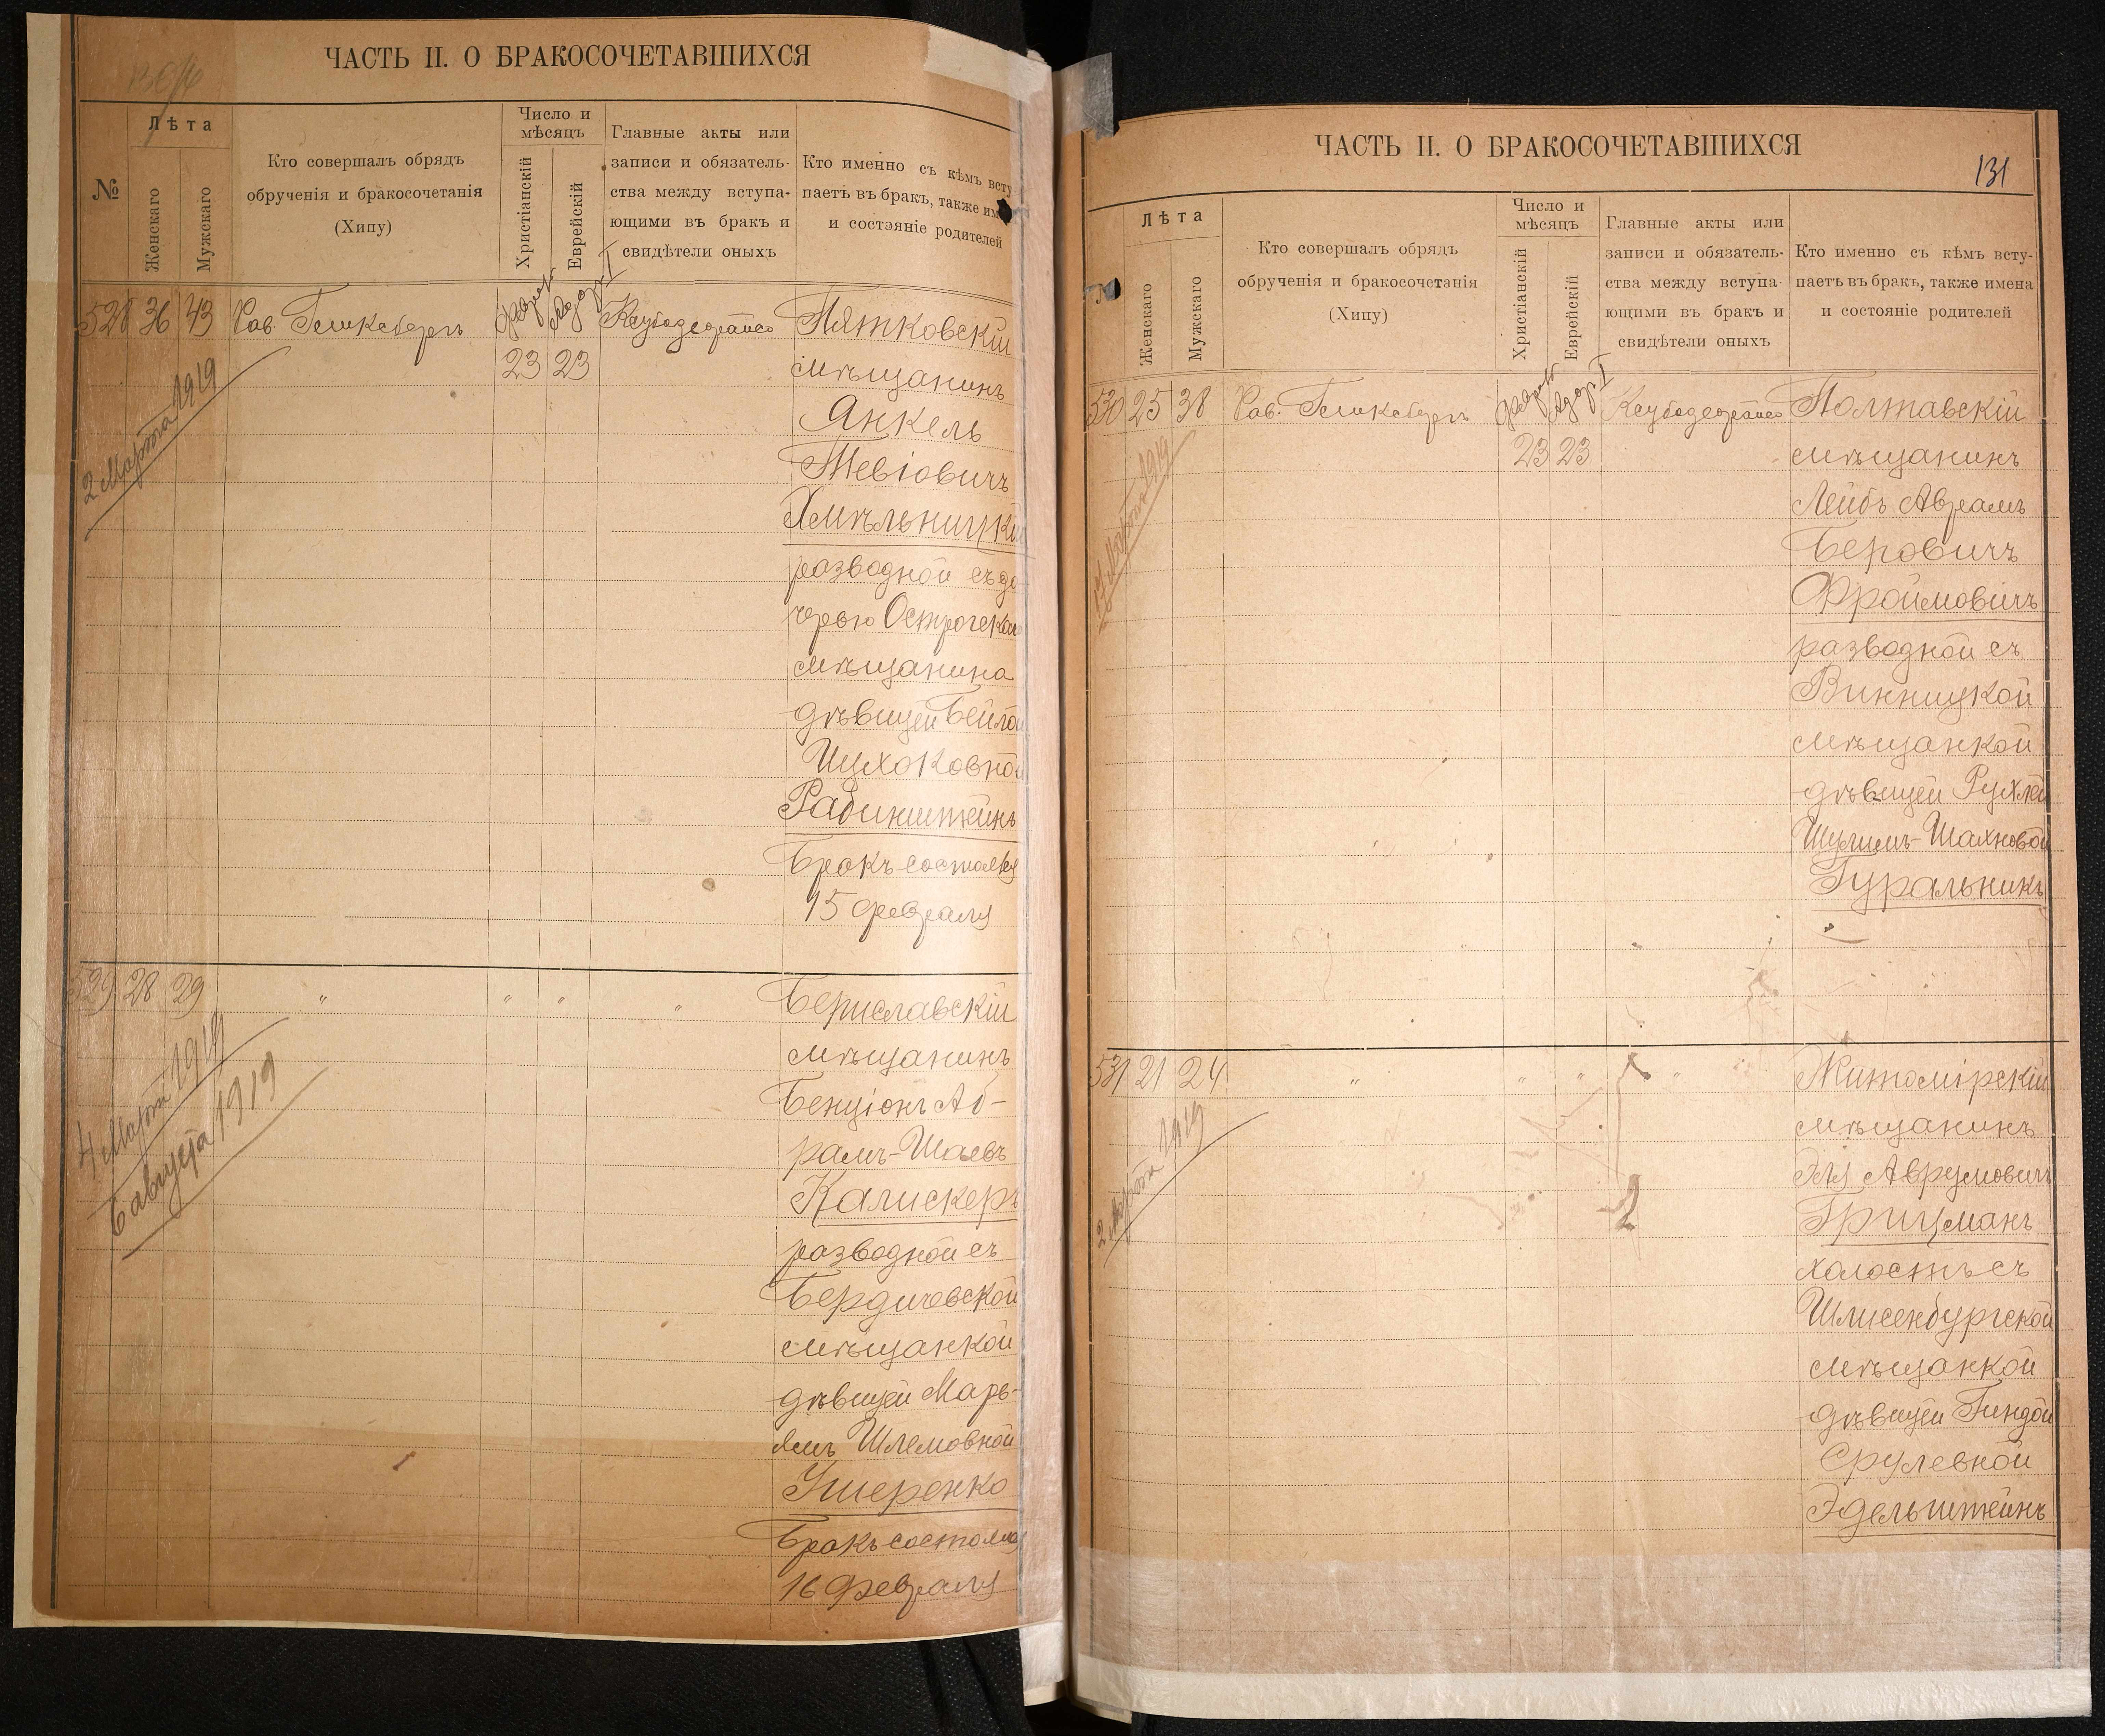 ЧАСТЬ II. О БРАКОСОЧЕТАВШИХСЯ
№
Лѣта
Женскаго
Мужскаго
Кто совершалъ обрядъ
обрученія и бракосочетанія
(Хипу)
Число и
мѣсяцъ
Христіанскій
Еврейскій
Главные акты или
записи и обязатель-
ства между вступа-
ющими въ бракъ и
свидѣтели оныхъ
Кто именно съ кѣмъ всту
паетъ въ бракъ, также им
и состэяніе родителей
528 36 43 Рав. Гликсбергъ
23 23
2 Марта 1919
Пятковскій
мѣщанинъ
Янкель
Тевіовичъ
Хмѣльницкі
разводной съ до
черью Острогска
мѣщанина
дѣвицей Бейлой
Ицхоковной
Рабинштейнъ
Бракъ состоялся
15 февраля
529 28 29 " " " "
4 Марта 1919
6 августа 1919
Бериславскій
мѣщанинъ
Бенціонъ Аб-
рамъ-Шаевъ
Калискеръ
разводной съ
Бердичевской
мѣщанкой
дѣвицей Марь-
ямъ Шлемовной
Ушеренко
Бракъ состоялся
16 Февраля
ЧАСТЬ II. О БРАКОСОЧЕТАВШИХСЯ
131
Лѣта
Женскаго
Мужскаго
Кто совершалъ обрядъ
обрученія и бракосочетанія
(Хипу)
Число и
мѣсяцъ
Христіанскій
Еврейскій
Главные акты или
записи и обязатель-
ства между вступа-
ющими въ бракъ и
свидѣтели оныхъ
Кто именно съ кѣмъ всту-
паетъ въ бракъ, также имена
и состояніе родителей
530 25 38 Рав. Гликсбергъ
23 23
17 Марта 1919
Полтавскій
мѣщанинъ
Лейбъ Аврамъ
Беровичъ
Фроймовичъ
разводной съ
Винницкой
мѣщанкой
дѣвицей Рухлей
Шулимъ-Шахновой
Гуральникъ
531 21 24 " " " "
2 Марта 1919
Житомірскій
мѣщанинъ
Эля Аврумовичъ
Грицманъ
холостъ съ
Шлисенбургской
мѣщанкой
дѣвицей Гиндой
Срулевной
Эдельштейнъ